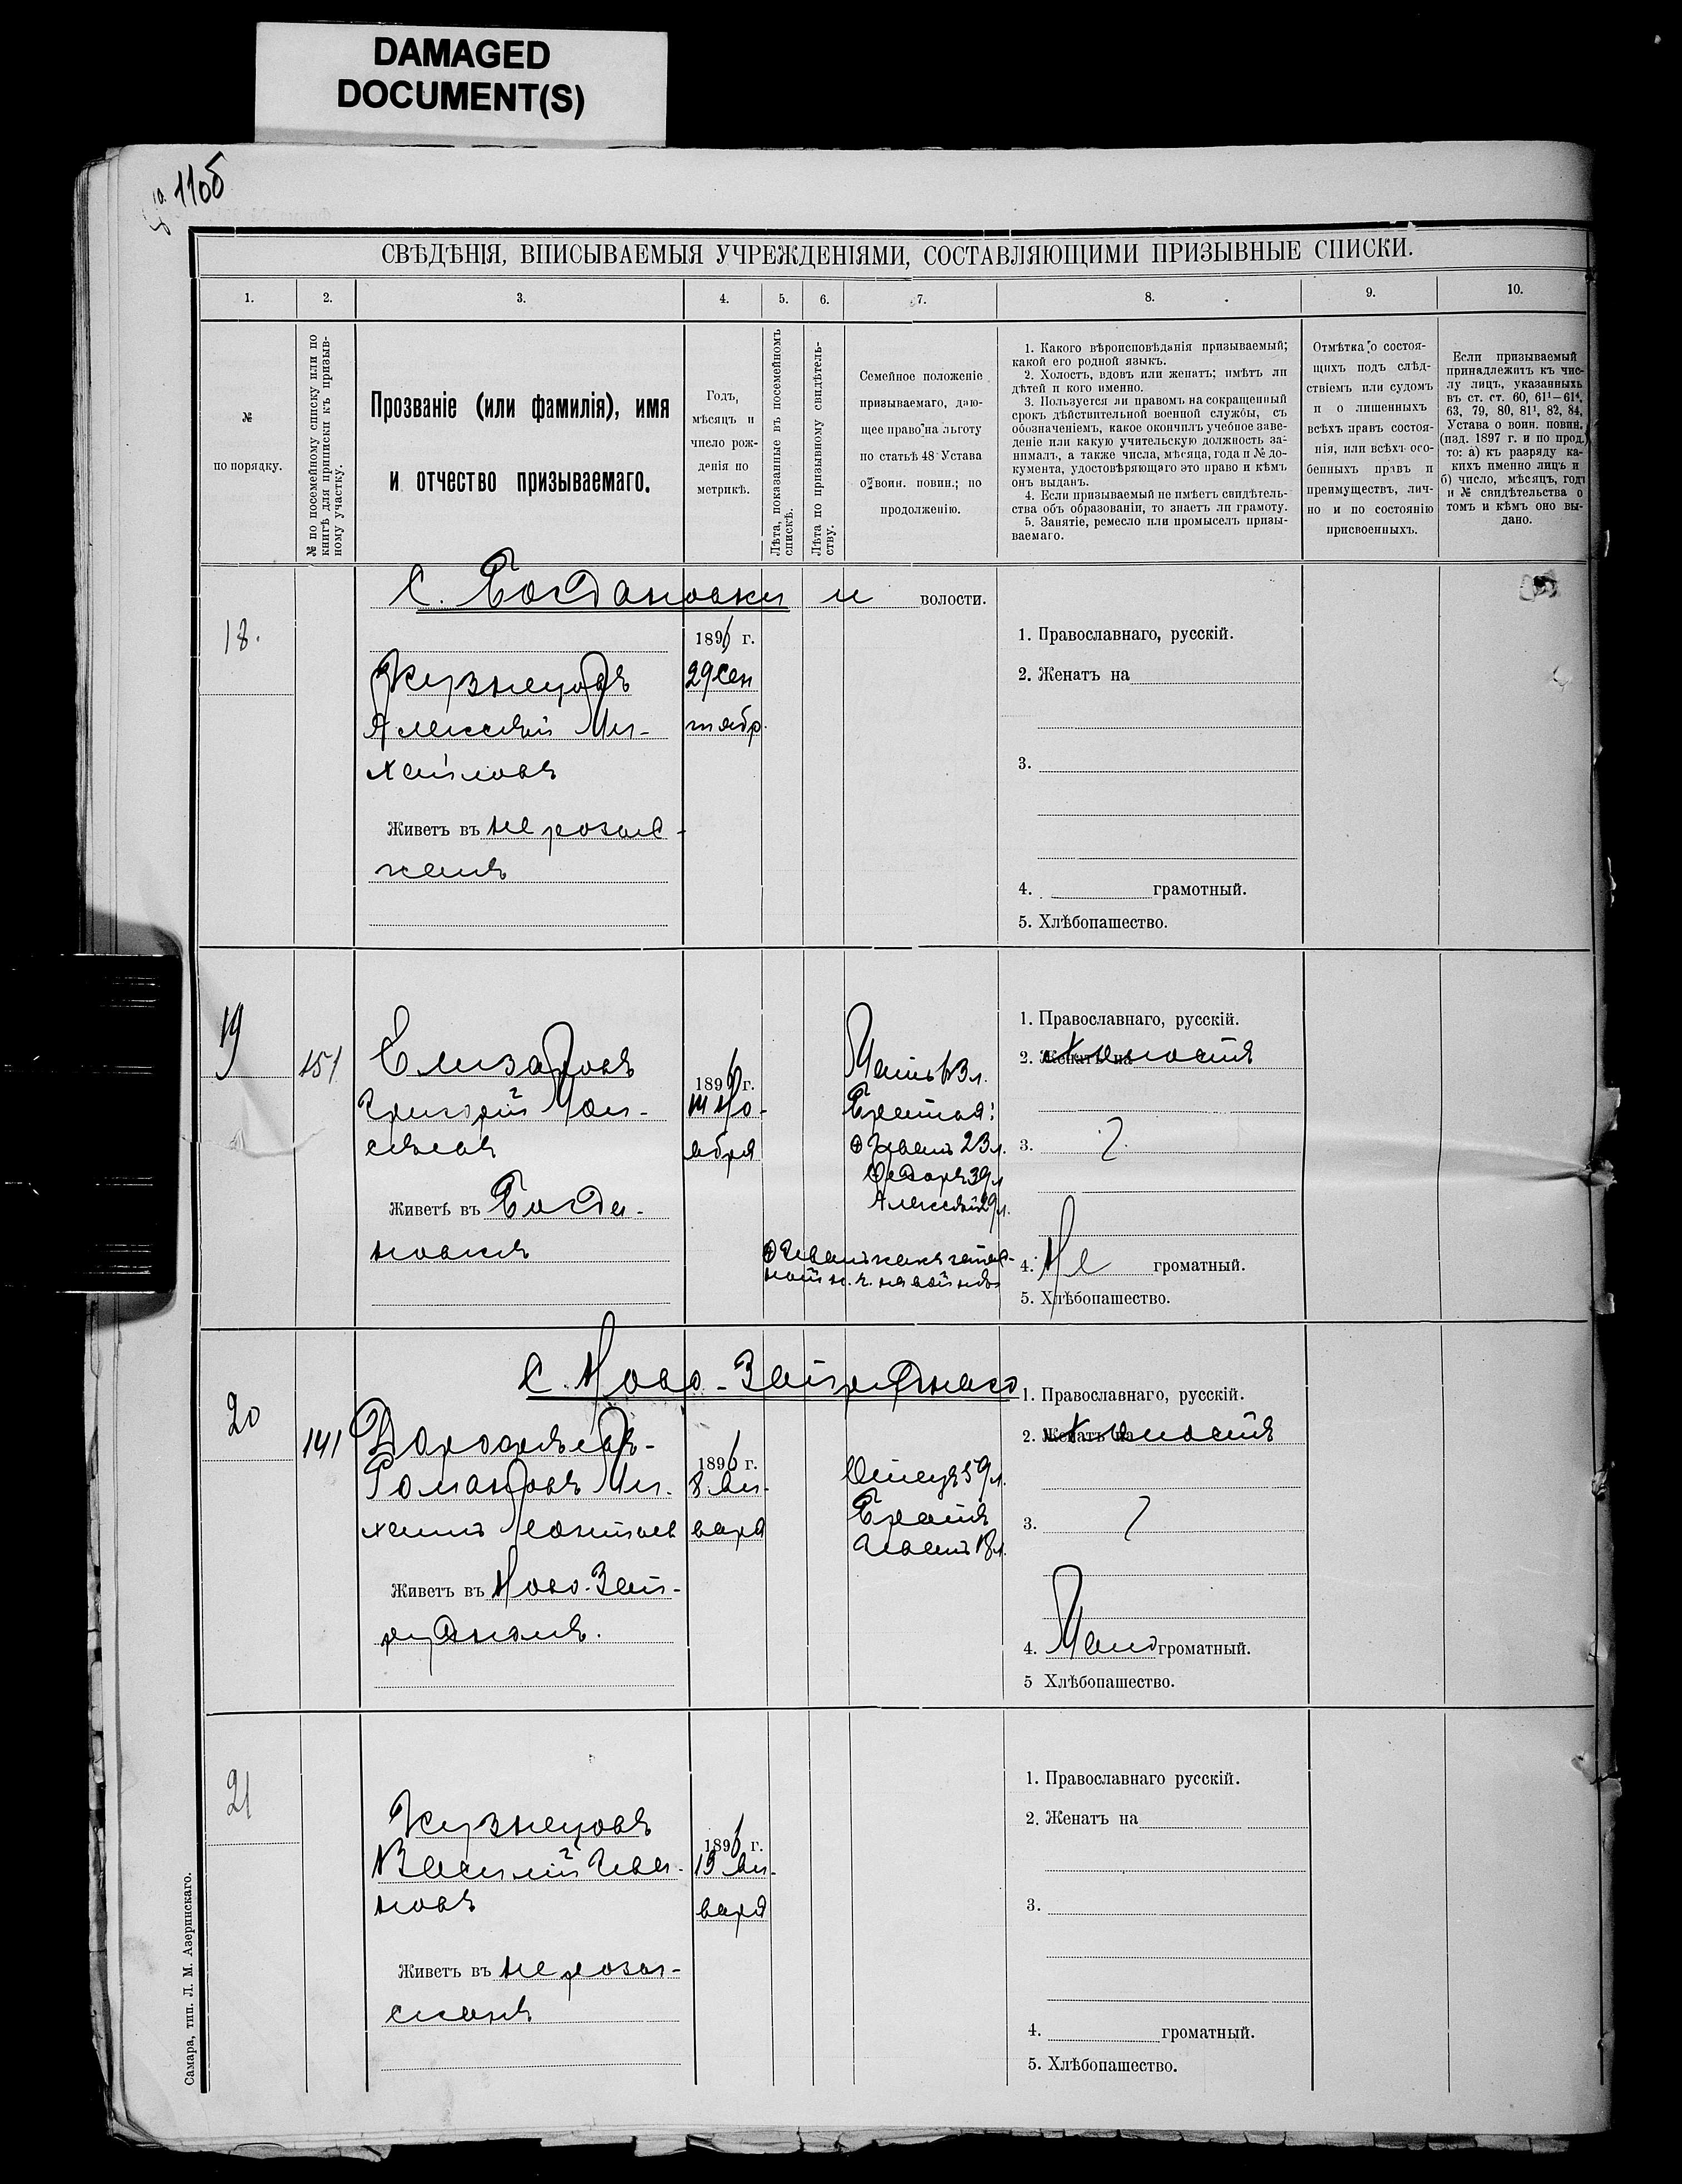 DAMAGED
DOCUMENT(S)
110б
СВѢДѢНІЯ, ВПИСЫВАЕМЫЯ УЧРЕЖДЕНІЯМИ, СОСТАВЛЯЮЩИМИ ПРИЗЫВНЫЕ СПИСКИ.
1. 2. 3. 4. 5. 6. 7. 8. 9. 10.
№
по порядку.
№ по посемейному списку или по
книгѣ для приписки къ призыв-
ному участку.
Прозваніе (или фамилія), имя
и отчество призываемаго.
Годъ,
мѣсяцъ и
число рож-
денія по
метрикѣ.
Лѣта, показанные въ посемейномъ
спискѣ.
Лѣта по призывному свидѣтель-
ству.
Семейное положеніе
призываемаго, даю-
щее право на льготу
по статьѣ 48 Устава
о воин. повин.; по
продолженію.
1. Какого вѣроисповѣданія призываемый;
какой его родной языкъ.
2. Холостъ, вдовъ или женатъ; имѣтъ ли
дѣтей и кого именно.
3. Пользуется ли правомъ на сокращенный
срокъ дѣйствительной военной службы, съ
обозначеніемъ, какое окончилъ учебное заве-
деніе или какую учительскую должность за-
нималъ, а также числа, мѣсяца, года и № до-
кумента, удостовѣряющаго это право и кѣмъ
онъ выданъ.
4. Если призываемый не имѣетъ свидѣтель-
ства объ образованіи, то знаетъ ли грамоту.
5. Занятіе, ремесло или промыселъ призы-
ваемаго.
Отмѣтка о состоя-
щихъ подъ слѣд-
ствіемъ или судомъ
и о лишенныхъ
всѣхъ правъ состоя-
нія, или всѣхъ осо-
бенныхъ правъ и
преимуществъ, лич-
но и по состоянію
присвоенныхъ.
Если призываемый
принадлежитъ къ чис-
лу лицъ, указанныхъ
въ ст. ст. 60, 61¹—61⁴,
63, 79, 80, 81¹, 82, 84,
Устава о воин. повин.
(изд. 1897 г. и по прод.)
то: а) къ разряду ка-
кихъ именно лицъ и
б) число, мѣсяцъ, годъ
и № свидѣтельства о
томъ и кѣмъ оно вы-
дано.
С. Богдановки и волости.
18.
Кузнецовъ
Алексѣй Ми-
хайловъ
Живетъ въ не розыс-
канъ
1896 г.
29 Сен
тябр.
1. Православнаго, русскій.
2. Женатъ на
3.
4. грамотный.
5. Хлѣбопашество.
19
151
Елизаровъ
Григорій Мои-
сѣевъ
Живетъ въ Богда-
новкѣ
1896 г.
14 Но-
ября
Мать 63 л.
Братья:
⊕ Иванъ 23 л.
Федоръ 39 л
Алексѣй 29 л.
⊕ Иванъ какъ запас-
ной н. ч. на войнѣ
1. Православнаго, русскій.
2. Женатъ на холостъ
3.
4. Не громатный.
5. Хлѣбопашество.
С. Ново-Запруднаго
20
141
Дорофѣевъ-
Романовъ Ми-
хаилъ Леонтьев
Живетъ въ Ново-Зап-
рудномъ.
1896 г.
8 Ян-
варя
Отецъ 59 л.
Братъ
Иванъ 18 л.
1. Православнаго, русскій.
2. Женатъ на холостъ
3.
4. Мало громатный.
5 Хлѣбопашество.
21
Кузнецовъ
Василій Ива-
новъ
Живетъ въ не розы-
сканъ
1896 г.
19 Ян-
варя
1. Православнаго русскій.
2. Женатъ на
3.
4. громатный.
5. Хлѣбопашество.
Самара, тип. Л. М. Азеринскаго.